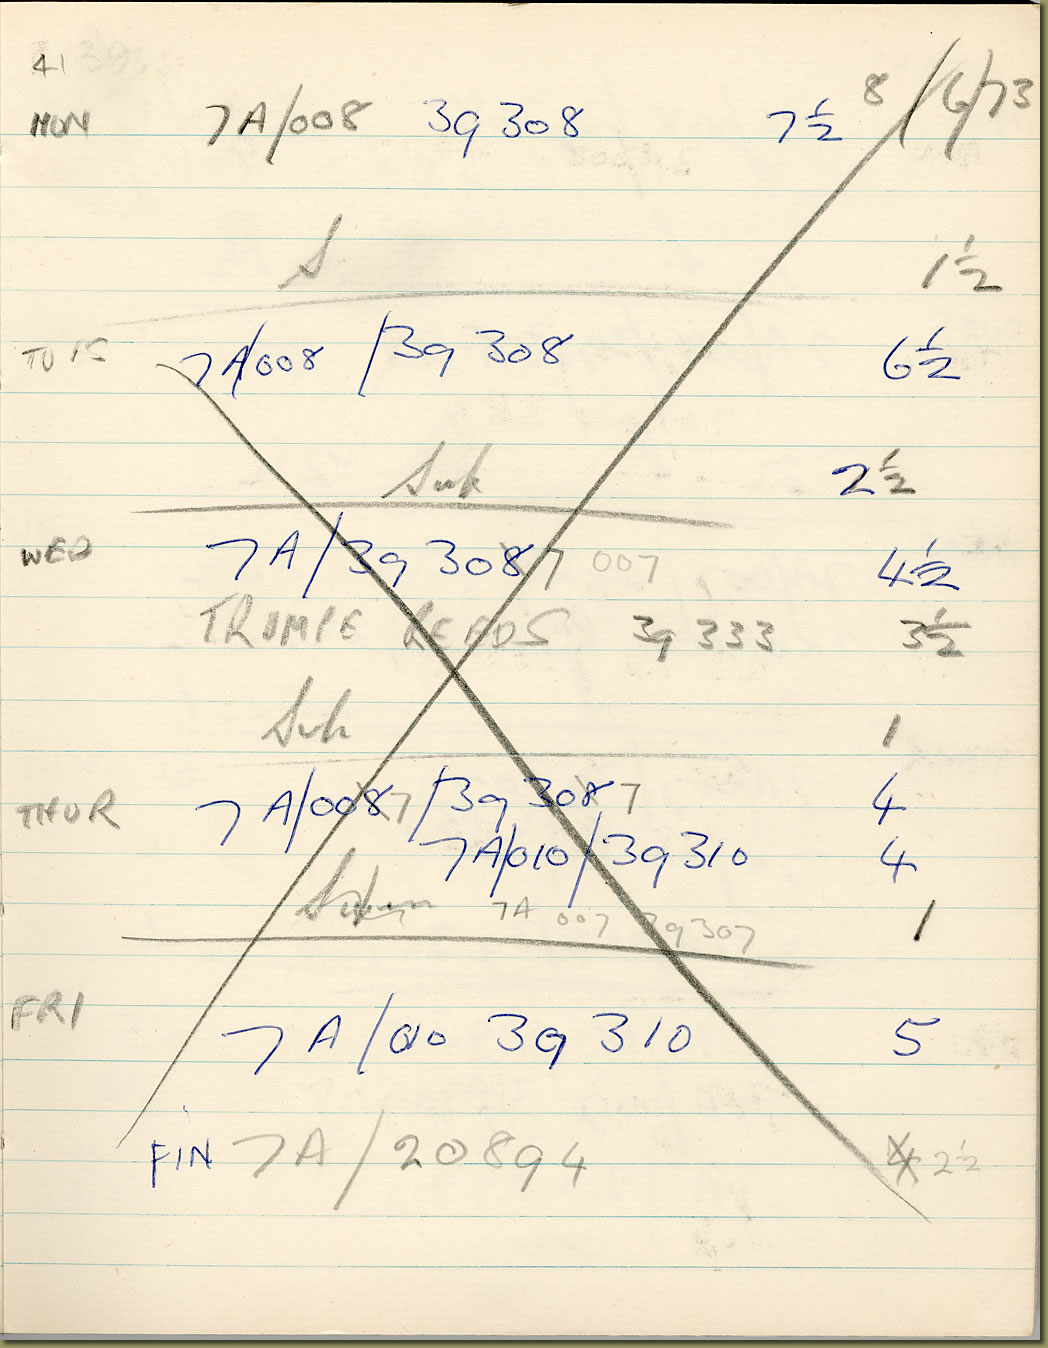 41
MON 7A/008 39308 7½ 8/6/73
S 1½
TUES 7A/008 /39 308 6½
Sub 2½
WED 7A/39 3087 007 4½
39333 3½
Sub 1
THUR 7A/0087 /39 3087 4
7A/010/39310 4
7A 007 39307 1
FRI 7A/010 39 310 5
FIN 7A/20894 4 2½